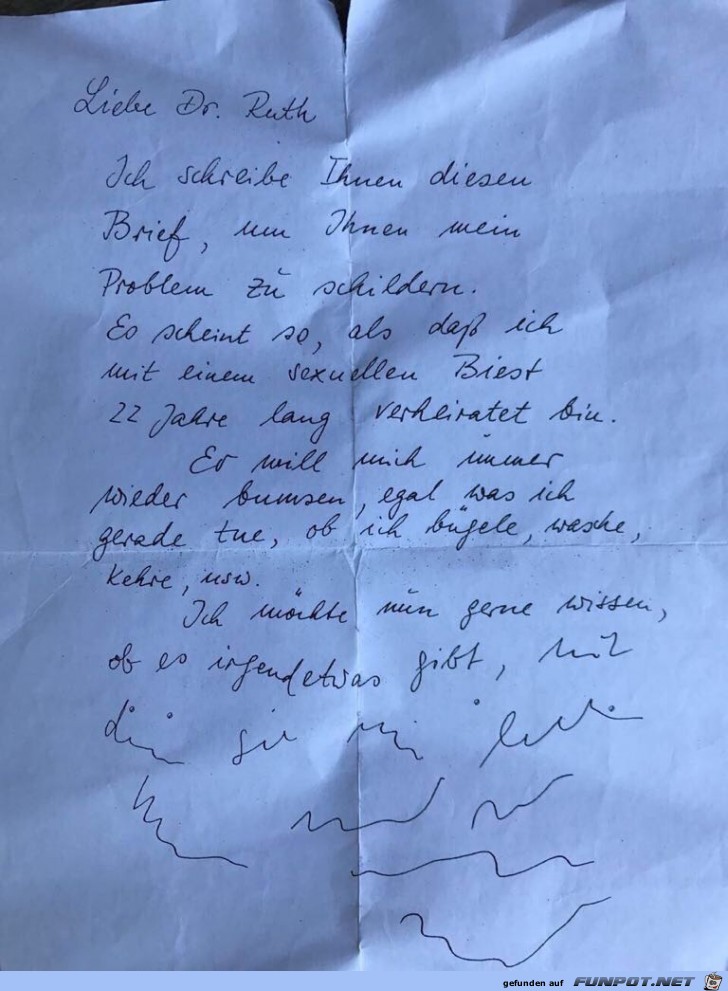 Liebe Dr. Ruth
Ich schreibe Ihnen diesen
Brief, um Ihnen mein
Problem zu schildern.
Es scheint so, als daß ich
mit einem sexuellen Biest
22 Jahre lang verheiratet bin.
Er will mich immer
wieder bumsen, egal was ich
gerade tue, ob ich bügele, wasche,
kehre, usw.
Ich möchte nun gerne wissen,
ob es irgendetwas gibt,
gefunden auf FUNPOT.NET